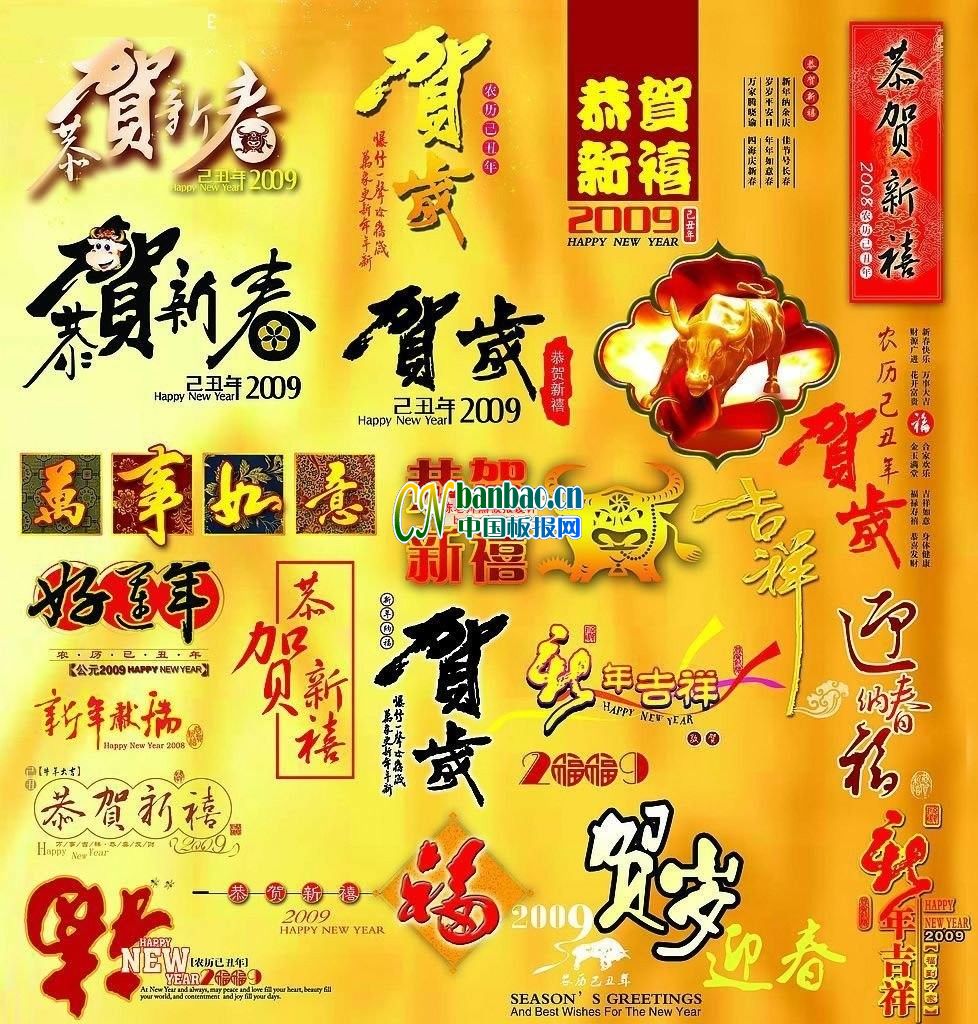 恭賀新春
己丑年
Happy New Year 2009
賀歲
农历己丑年
爆竹一聲除舊歲
萬象更新年年新
恭賀
新禧
2009
己丑年
HAPPY NEW YEAR
恭贺新禧
新年纳余庆
岁岁平安日
万家腾晓谕
佳节号长春
年年如意春
四海庆新春
恭贺新禧
2008 农历己丑年
恭賀新春
己丑年 2009
Happy New Year
贺歲
己丑年 2009
Happy New Year
恭贺新禧
农历己丑年
贺歲
新春快乐 万事大吉
财源广进 花开富贵
福
合家欢乐 吉祥如意 身体健康
金玉满堂 福禄寿禧 恭喜发财
萬事如意
恭贺
新禧
CN banbao.cn
中国板报网
吉祥
好運年
农·历·己·丑·年
【公元2009 HAPPY NEW YEAR】
恭贺新禧
新年纳福
贺歲
爆竹一聲除舊歲
萬象更新年年新
新年吉祥
HAPPY NEW YEAR
致贺
2福福9
迎春纳福
新年献瑞
Happy New Year 2008
【牛年大吉】
恭贺新禧
万事吉祥·恭喜发财
Happy New Year 2009
HAPPY
NEW
YEAR
[农历己丑年]
2福福9
At New Year and always, may peace and love fill your heart, beauty fill
your world, and contentment and joy fill your days.
恭贺新禧
2009
HAPPY NEW YEAR
福
2009
贺岁
迎春
农历己丑年
SEASON'S GREETINGS
And Best Wishes For The New Year
新年吉祥
HAPPY
NEW YEAR
2009
【福到万家】